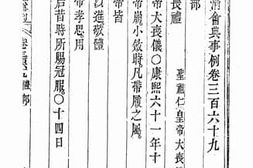 清會典事例卷三百六十九
部
喪禮
聖祖仁皇帝大喪
帝大喪儀〇康熙六十一年十
小斂時凡帶履之屬
帝皆
以進敬體
帝孝思用
后昔時所賜冠服〇十四日